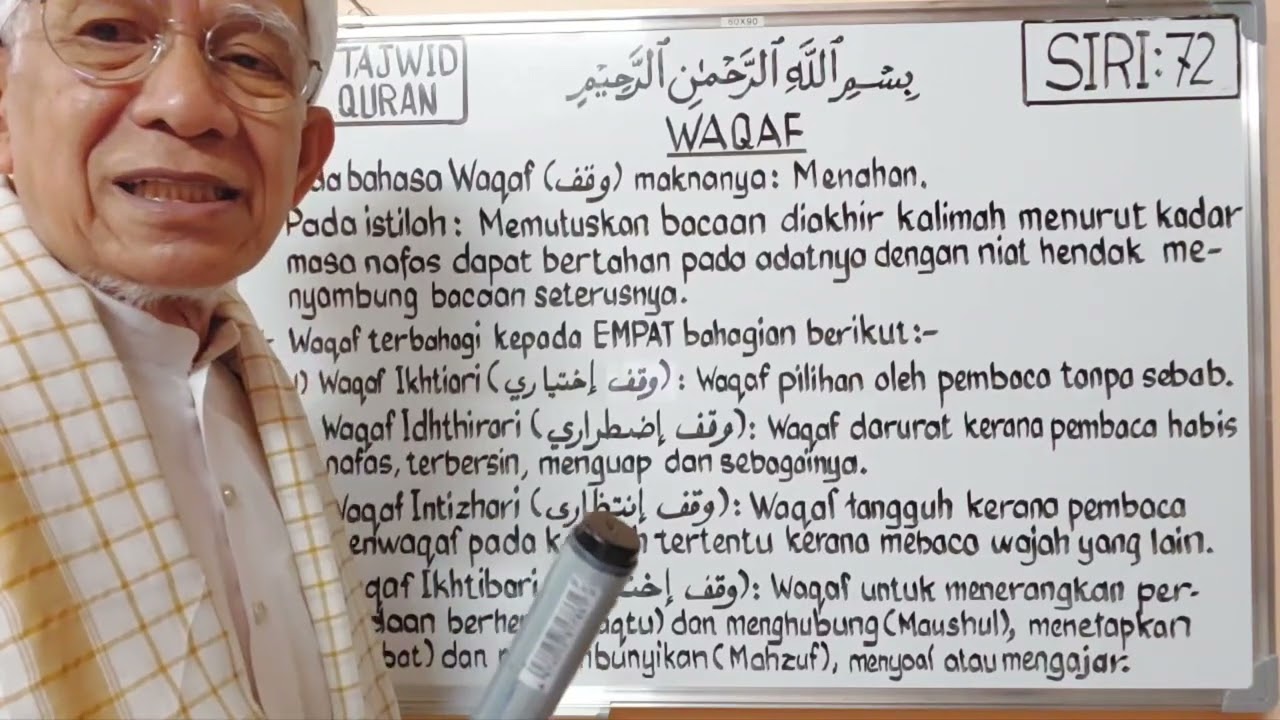 60X90
TAJWID
QURAN
بِسْمِ ٱللَّهِ ٱلرَّحْمَٰنِ ٱلرَّحِيمِ
SIRI:72
WAQAF
bahasa Waqaf (وقف) maknanya: Menahan.
Pada istilah: Memutuskan bacaan diakhir kalimah menurut kadar
masa nafas dapat bertahan pada adatnya dengan niat hendak me-
nyambung bacaan seterusnya.
Waqaf terbahagi kepada EMPAT bahagian berikut:-
1) Waqaf Ikhtiari (وقف إختياري): Waqaf pilihan oleh pembaca tanpa sebab.
Waqaf Idhthirari (وقف إضطراري): Waqaf darurat kerana pembaca habis
nafas, terbersin, menguap dan sebagainya.
Waqaf Intizhari (وقف إنتظاري): Waqaf tangguh kerana pembaca
pada tertentu kerana mebaca wajah yang lain.
Ikhtibari وقف): Waqaf untuk menerangkan per-
dan menghubung (Maushul), menetapkan
dan (Mahzuf), menyoal atau mengajar.